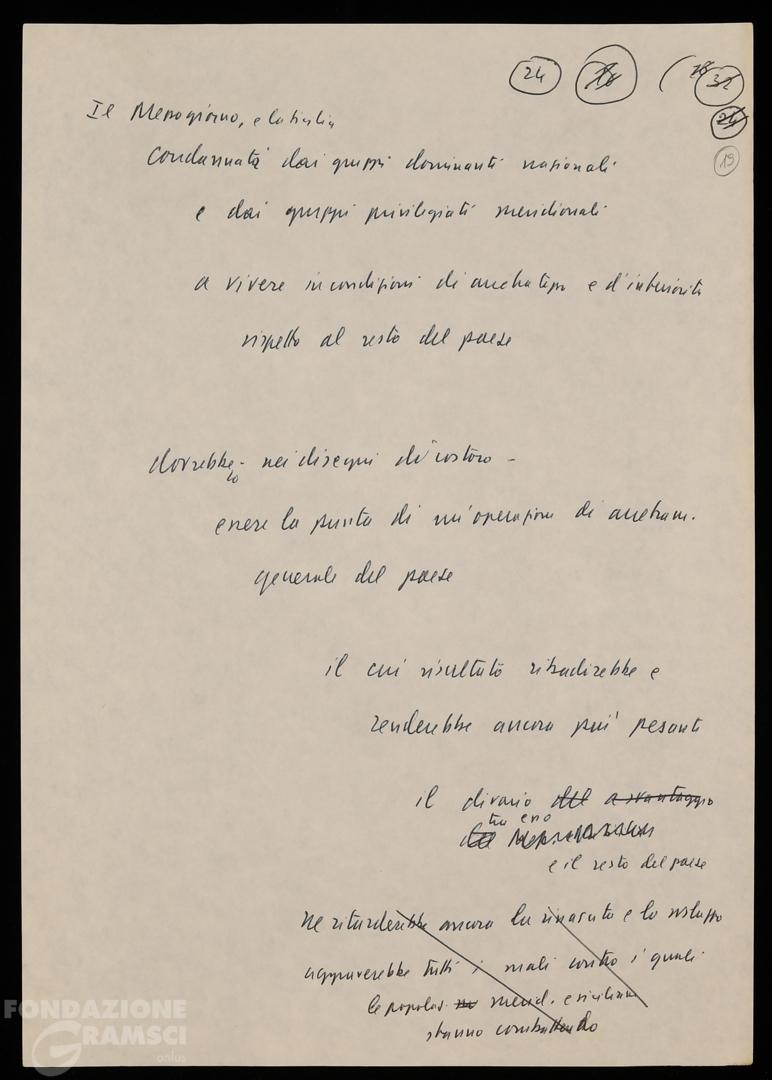 24 18 28 32
24
19
Il Mezzogiorno, e la Sicilia
Condannati dai gruppi dominanti nazionali
e dai gruppi privilegiati meridionali
a vivere in condizioni di arretratezza e d'inferiorità
rispetto al resto del paese
dovrebbero - nei disegni di costoro -
essere la punta di un'operazione di arretram.
generale del paese
il cui risultato ribadirebbe e
renderebbe ancora più pesante
il divario del a svantaggio
tra esso
del Mezzogiorno
e il resto del paese
Ne ritarderebbe ancora la rinascita e lo sviluppo
aggraverebbe tutti i mali contro i quali
le popolaz. merid. e siciliane
stanno combattendo
FONDAZIONE
GRAMSCI
onlus